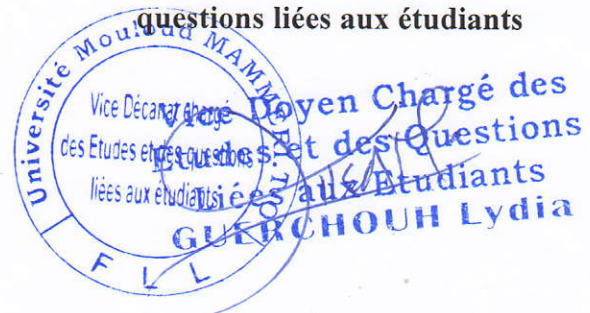 questions liées aux étudiants
Université Mouloud MAMMERI T.O
Vice Décanat chargé
des Etudes et des questions
liées aux étudiants
F L L
Vice Doyen Chargé des
Etudes et des Questions
Liées aux Etudiants
GUERCHOUH Lydia